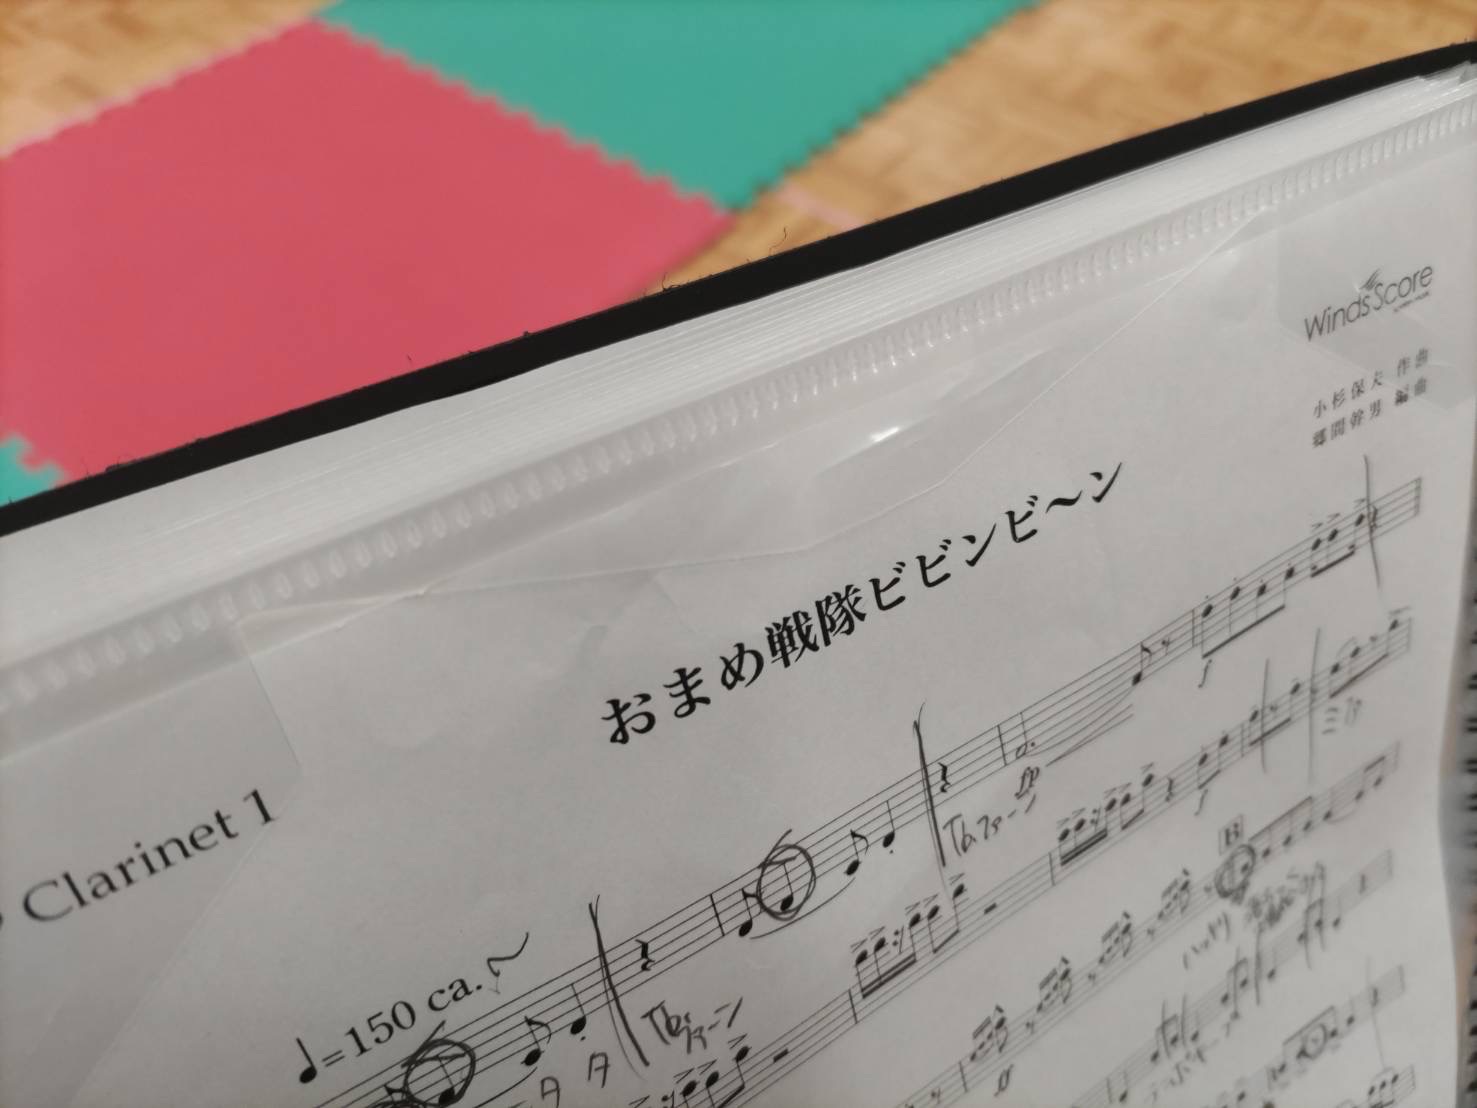 WindsScore
小杉保夫 作曲
郷間幹男 編曲
おまめ戦隊ビビンビ〜ン
Clarinet 1
♩=150 ca.
fp
f
Tb.ファーン
f
B
Tb.ファーン
タ タ
ff